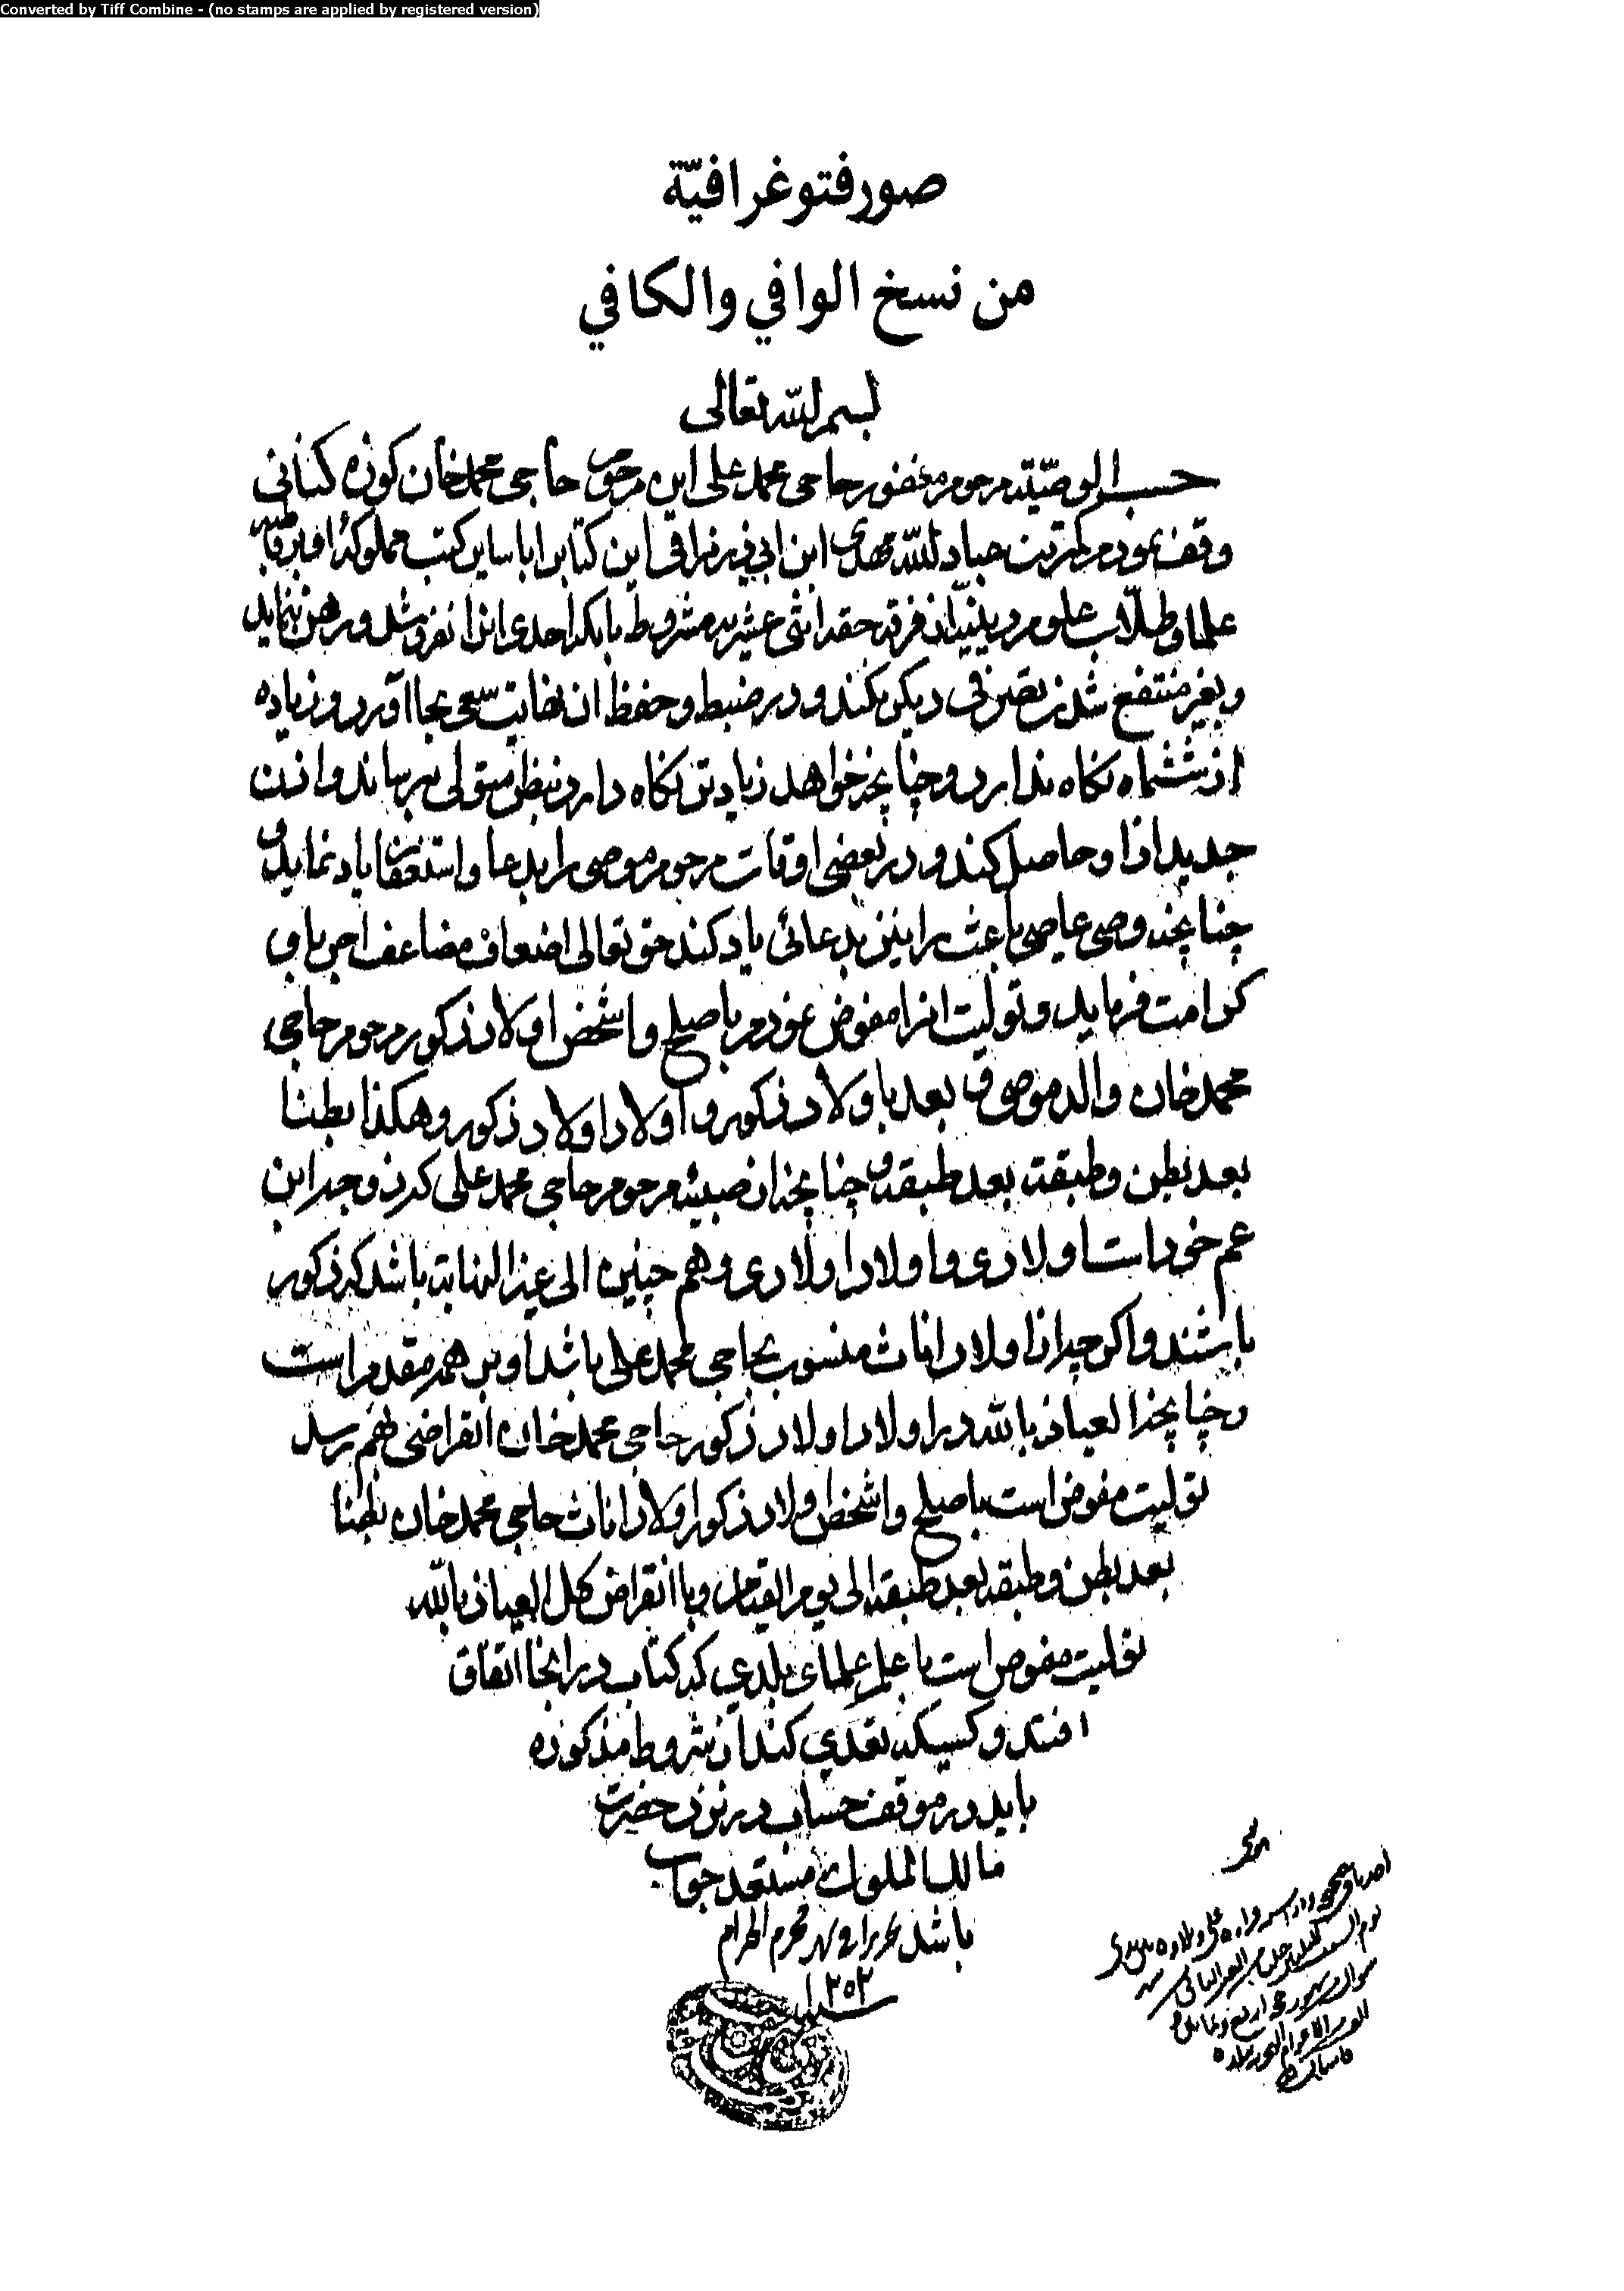 Converted by Tiff Combine - (no stamps are applied by registered version)
صور فتوغرافيّة
من نسخ الوافي والكافي
بسم الله تعالى
حسب الوصیّته مرحوم مغفور حاجی محمد علی ابن مرحوم حاجی محمد خان کوزه کنانی
وقف نمودم کمترین عباد الله مهدی ابن ابی ذر نراقی این کتابرا با سایر کتب مملوکۀ او بر کافّه
علما و طلّاب علوم دینیّه از فرقه حقه اثنی عشریه مشروط بانکه احدی انرا نفروشد و رهن ننماید
و بغیر منتفع شدن تصرفی دیکر نکند و در ضبط و حفظ ان نهایت سعی بجا آورد و زیاده
از ششماه نکاه ندارد و چنانچه خواهد زیادتر نکاه دارد بنظر متولی برساند و اذن
جدید از او حاصل کند و در بعضی اوقات مرحوم موصی را بدعا و استغفار یاد نماید و
چنانچه وصی عاصی باعث را نیز بدعائی یاد کند حق تعالی اضعاف مضاعف اجر باو
کرامت فرماید و تولیت انرا مفوض نمودم باصلح و اشخص اولاد ذکور مرحوم حاجی
محمد خان والد موصی و بعد باولاد ذکور و اولاد اولاد ذکور و هکذا بطنا
بعد بطن و طبقة بعد طبقة و چنانچه از صبیّه مرحوم حاجی محمد علی که زوجه ابن
عم خود است اولادی و اولاد اولادی و هم چنین الی غیر النهایة باشد که ذکور
باشند و اکر چه از اولاد اناث منسوب بحاجی محمد علی باشد او بر همه مقدم است
و چنانچه العیاذ بالله در اولاد اولاد ذکور حاجی محمد خان انقراضی بهم رسد
تولیت مفوض است باصلح و اشخص اولاد ذکور اولاد اناث حاجی محمد خان بطنا
بعد بطن و طبقه بعد طبقه الی یوم القیام و با انقراض کل العیاذ بالله
تولیت مفوض است باعلم علمای بلدی که کتاب در انجا اتفاق
افتد و کسیکه تعدی کند از شروط مذکوره
باید در موقف حساب در نزد حضرت
مالک الملوک مستعد جواب
باشد تحریرا فی شهر محرم الحرام
سنه ۱۲۵۲